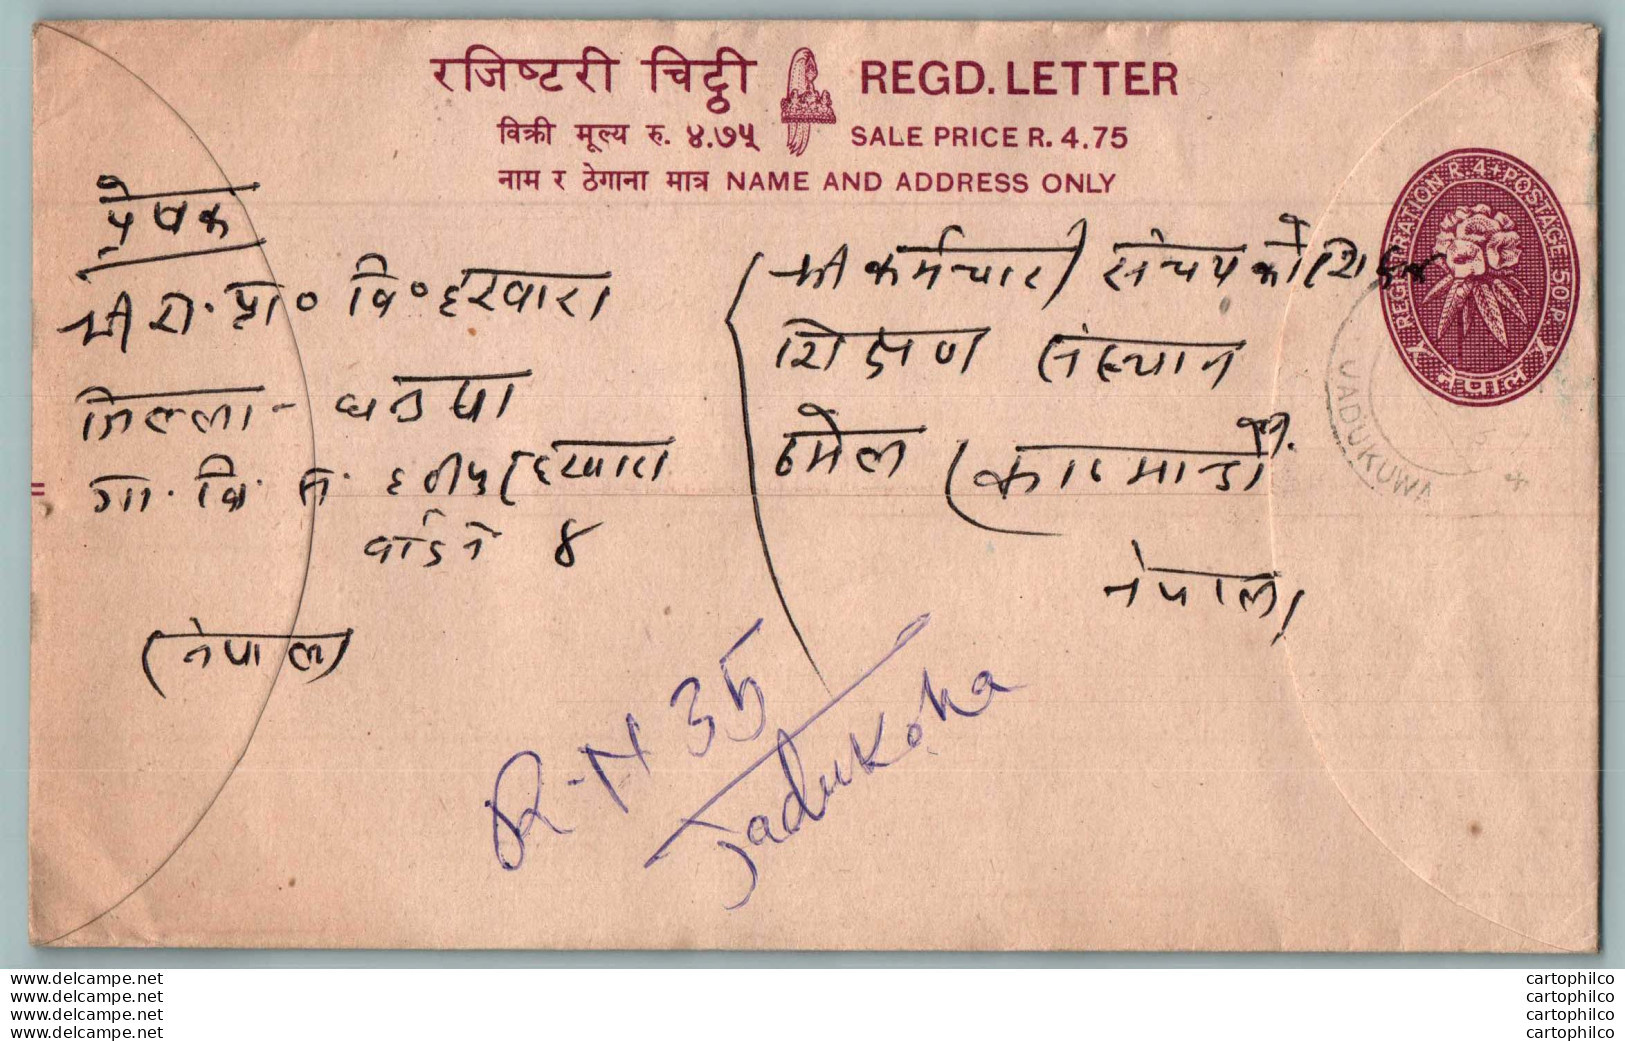 रजिष्टरी चिट्ठी REGD. LETTER
विक्री मूल्य रु. ४.७५ SALE PRICE R. 4.75
नाम र ठेगाना मात्र NAME AND ADDRESS ONLY
REGISTRATION R. 4+POSTAGE 50 P.
नेपाल
JADUKUWA
प्रेषक
श्री रा. प्रा० वि०
जिल्ला - धनुषा
गा. वि. स.
वार्ड नं ४
(नेपाल)
श्री कर्मचारी संचय कोष
शिक्षण संस्थान
ठमेल (काठमाडौं
नेपाल।
R-N 35
Jadukoha
www.delcampe.net
www.delcampe.net
www.delcampe.net
www.delcampe.net
cartophilco
cartophilco
cartophilco
cartophilco